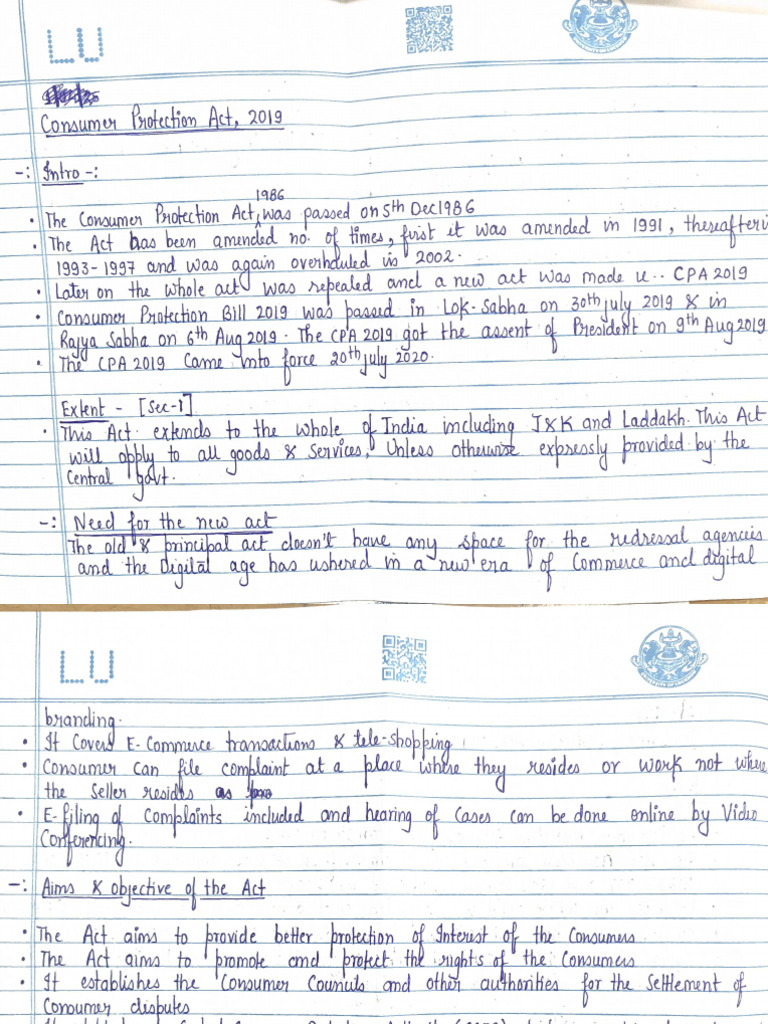 LU
Consumer Protection Act, 2019
-: Intro -:
1986
• The Consumer Protection Act, ^ was passed on 5th Dec 1986
• The Act has been amended no. of times, first it was amended in 1991, thereafter in
1993-1997 and was again overhauled in 2002.
• Later on the whole act was repealed and a new act was made i.e. CPA 2019
• Consumer Protection Bill 2019 was passed in Lok-Sabha on 30th july 2019 & in
Rajya Sabha on 6th Aug 2019. The CPA 2019 got the assent of President on 9th Aug 2019
• The CPA 2019 Came into force 20th july 2020.
Extent - [Sec-1]
• This Act extends to the whole of India including J&K and Laddakh. This Act
will apply to all goods & Services, Unless otherwise expressly provided by the
Central govt.
-: Need for the new act
The old & principal act doesn't have any space for the redressal agencies
and the Digital age has ushered in a new era of Commerce and digital
LU
branding.
• It Covers E-Commerce transactions & tele-shopping
• Consumer Can file complaint at a place where they resides or work not where
the Seller resides as
• E-filing of Complaints included and hearing of Cases can be done online by Video
Conferencing.
-: Aims & objective of the Act
• The Act aims to provide better protection of Interest of the Consumers
• The Act aims to promote and protect the rights of the Consumers
• It establishes the Consumer Councils and other authorities for the Settlement of
Consumer disputes